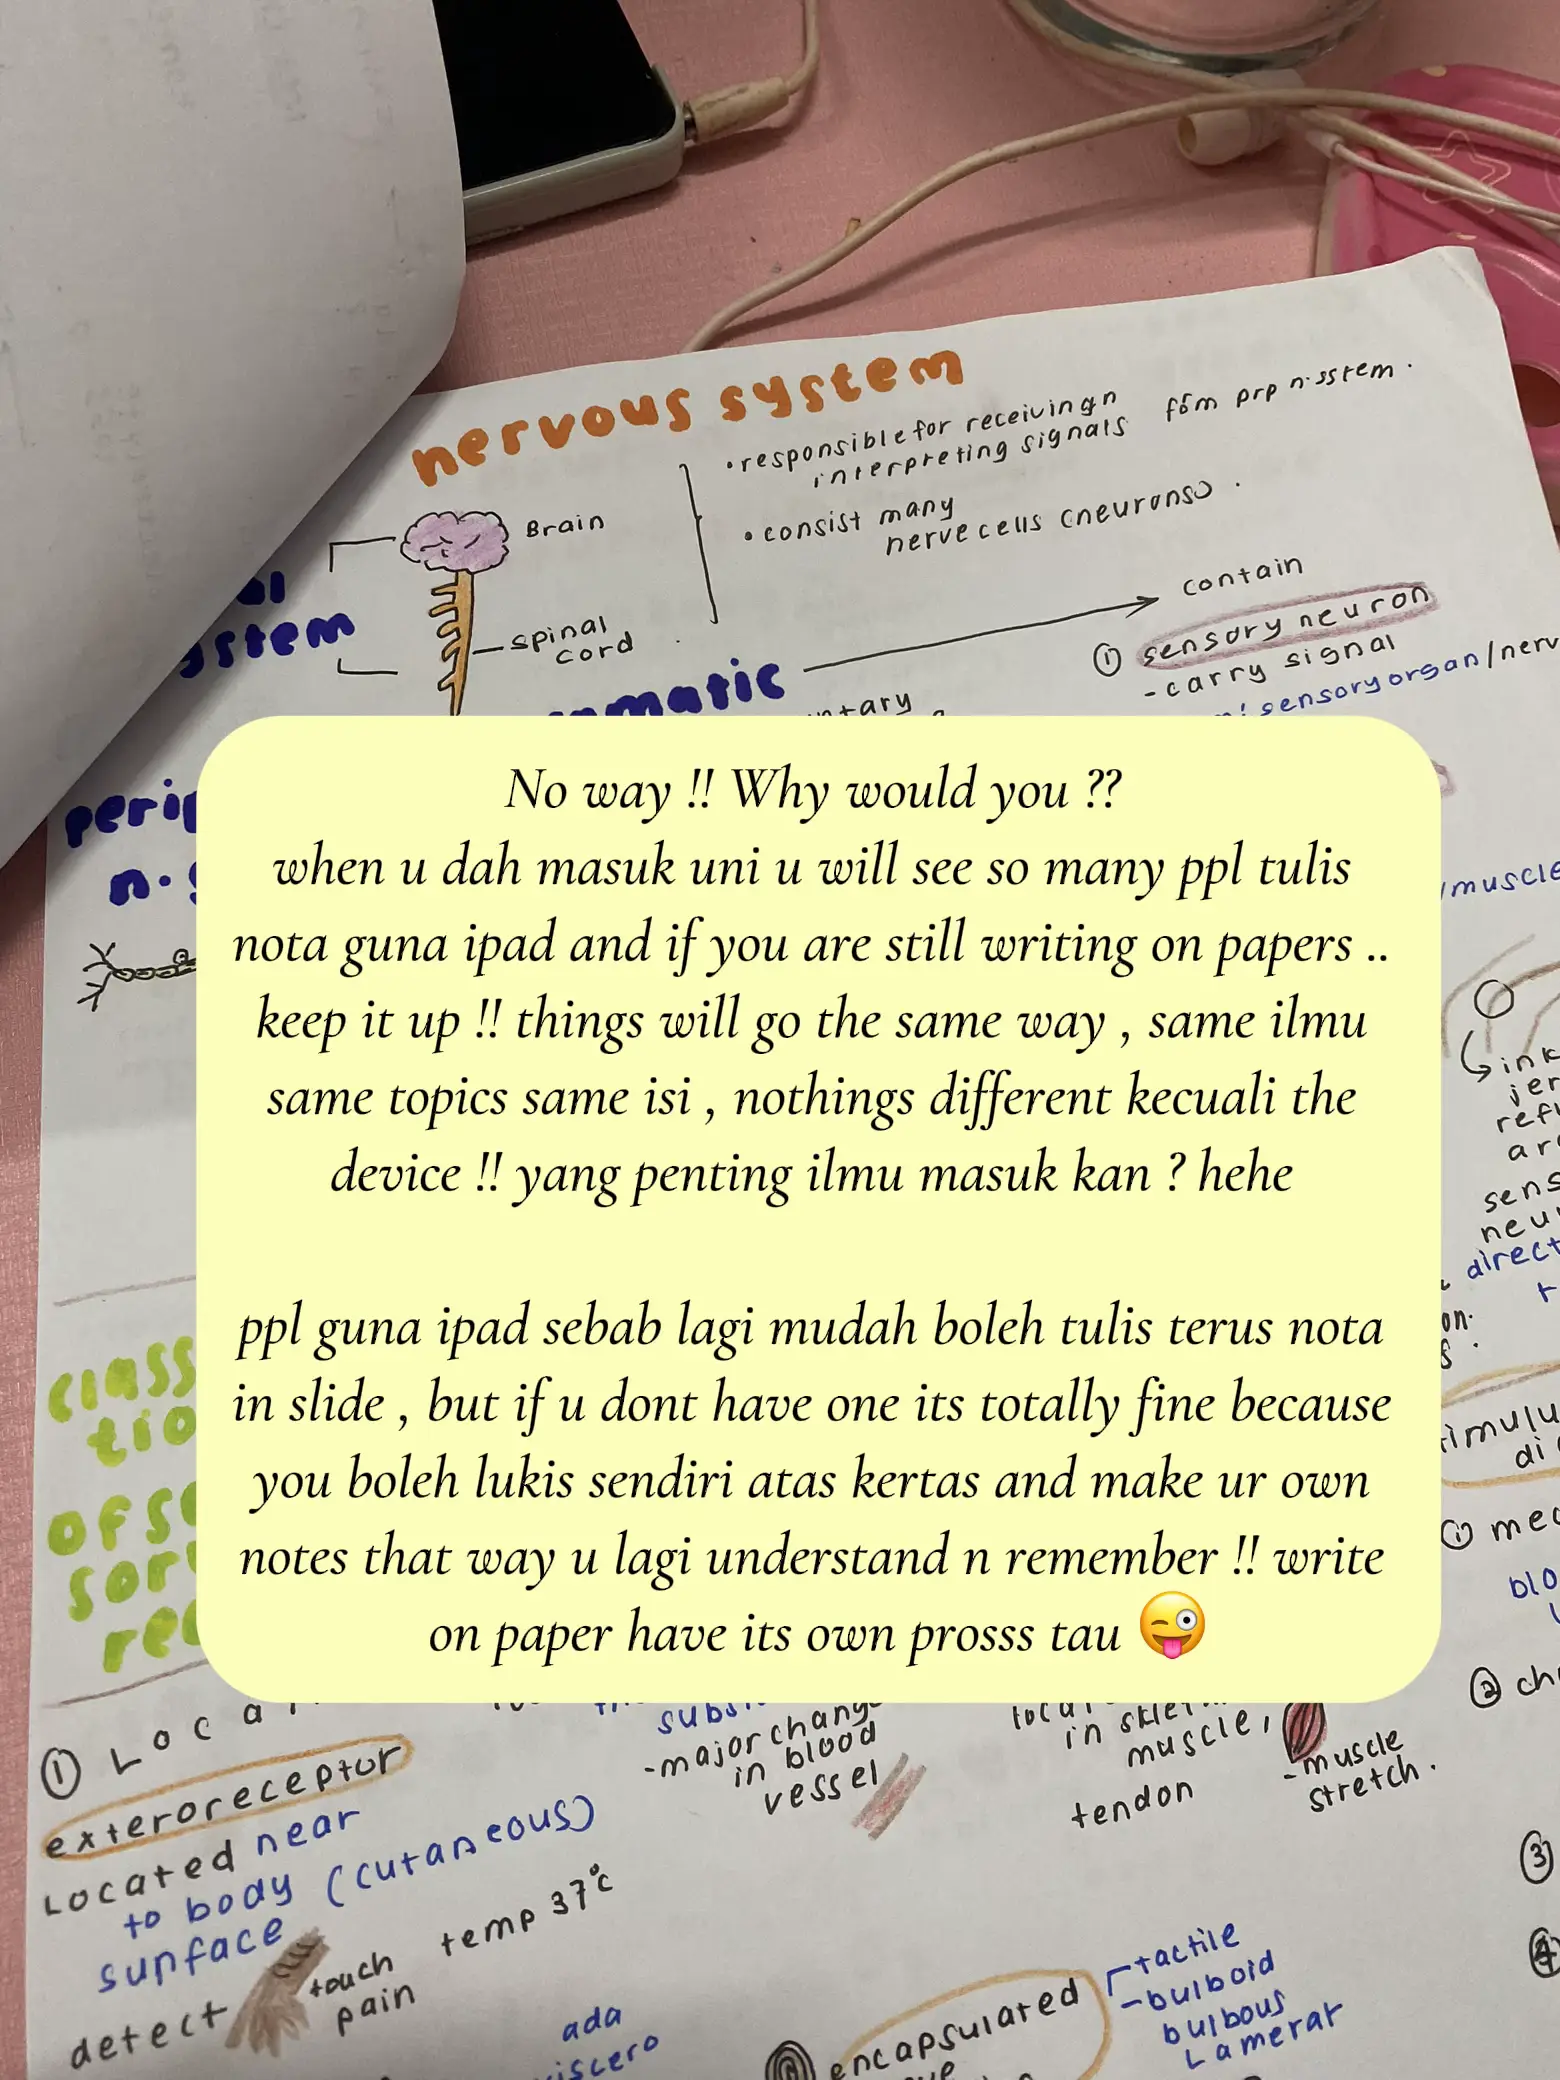 nervous system
•responsible for receiving n
interpreting signals
prp n.sstem.
•consist many
nerve cells
Brain
spinal
cord
stem
contain
① sensory neuron
-carry signal
sensory organ/nerv
matic
ntary
perip
n.
muscle
No way !! Why would you ??
when u dah masuk uni u will see so many ppl tulis
nota guna ipad and if you are still writing on papers ..
keep it up !! things will go the same way , same ilmu
same topics same isi , nothings different kecuali the
device !! yang penting ilmu masuk kan ? hehe
ppl guna ipad sebab lagi mudah boleh tulis terus nota
in slide , but if u dont have one its totally fine because
you boleh lukis sendiri atas kertas and make ur own
notes that way u lagi understand n remember !! write
on paper have its own prosss tau 😜
ink
jer
sens
neu
direct
class
tio
OF se
sor
rec
① med
blo
② ch
③
④
① Locat
exteroreceptor
Located near
to body (cutaneous)
sunface
detect
touch
pain
temp 37°c
-major change
in blood
vessel
in
muscle,
tendon
-muscle
stretch.
ada
encapsulated
tactile
-bulboid
bulbous
Lamerar